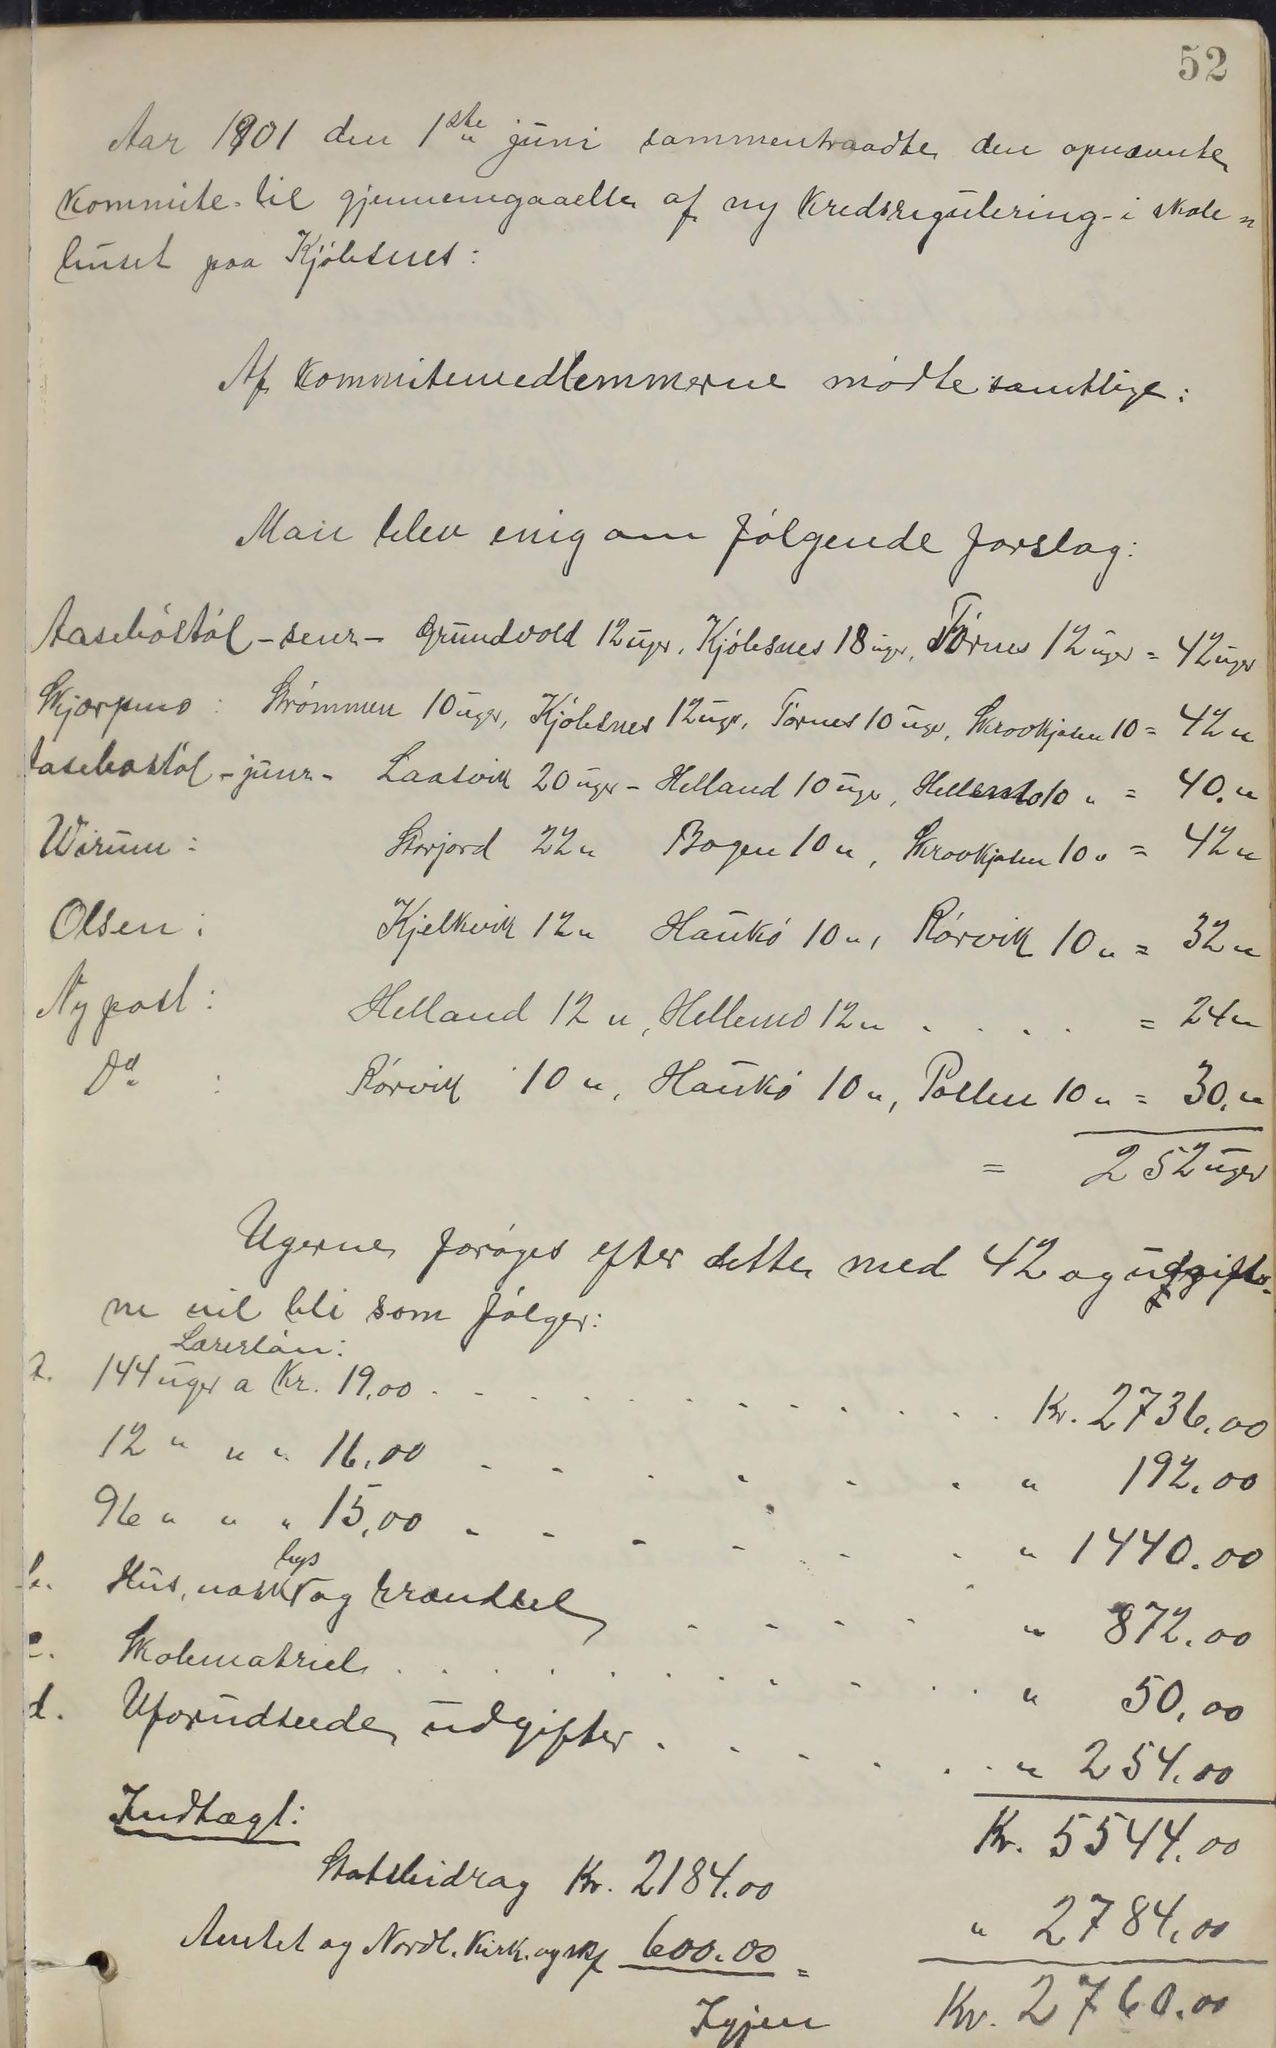 52
Aar 1901 den 1ste juni sammentraadte den opnævnte
kommite til gjennemgaaelse af ny kredsregulering i skole-
huset paa Kjøbsnes:
Af kommitemedlemmerne mødte samtlige:
Man blev enig om følgende forslag:
Aasebøstøl - senr - Grundvold 12 uger, Kjøbsnes 18 uger, Tørnes 12 uger = 42 uger
Skjærpmo: Strømmen 10 uger, Kjøbsnes 12 uger, Tørnes 10 uger, Skrovkjosen 10 = 42 "
Aasebøstøl - junr - Laasvik 20 uger - Helland 10 uger, Hellemo 10 " = 40. "
Wirum: Storjord 22 " Bogen 10 ", Skrovkjosen 10 " = 42 "
Olsen: Kjelkvik 12 " Haukø 10 ", Rørvik 10 " = 32 "
Ny post: Helland 12 ", Hellemo 12 " . . . . = 24 "
Do : Rørvik 10 ", Haukø 10 ", Pollen 10 " = 30. "
= 252 uger
Ugerne forøges efter dette med 42 og udgifter-
ne vil bli som følger:
Lærerløn:
a. 144 uger a Kr. 19.00 . . . . . . . Kr. 2736.00
12 " " " 16.00 . . . . . . . " 192.00
96 " " " 15,00 . . . . . . . " 1440.00
b. Hus, vask lys og brændsel . . . . " 872.00
c. Skolematriel . . . . . . . " 50,00
d. Uforudseede udgifter . . . . . . " 254.00
Kr. 5544.00
Indtægt:
Statsbidrag Kr. 2184.00
Amtet og Nordl. Kirk. og skf 600.00 = " 2784,00
Igjen Kr. 2760.00